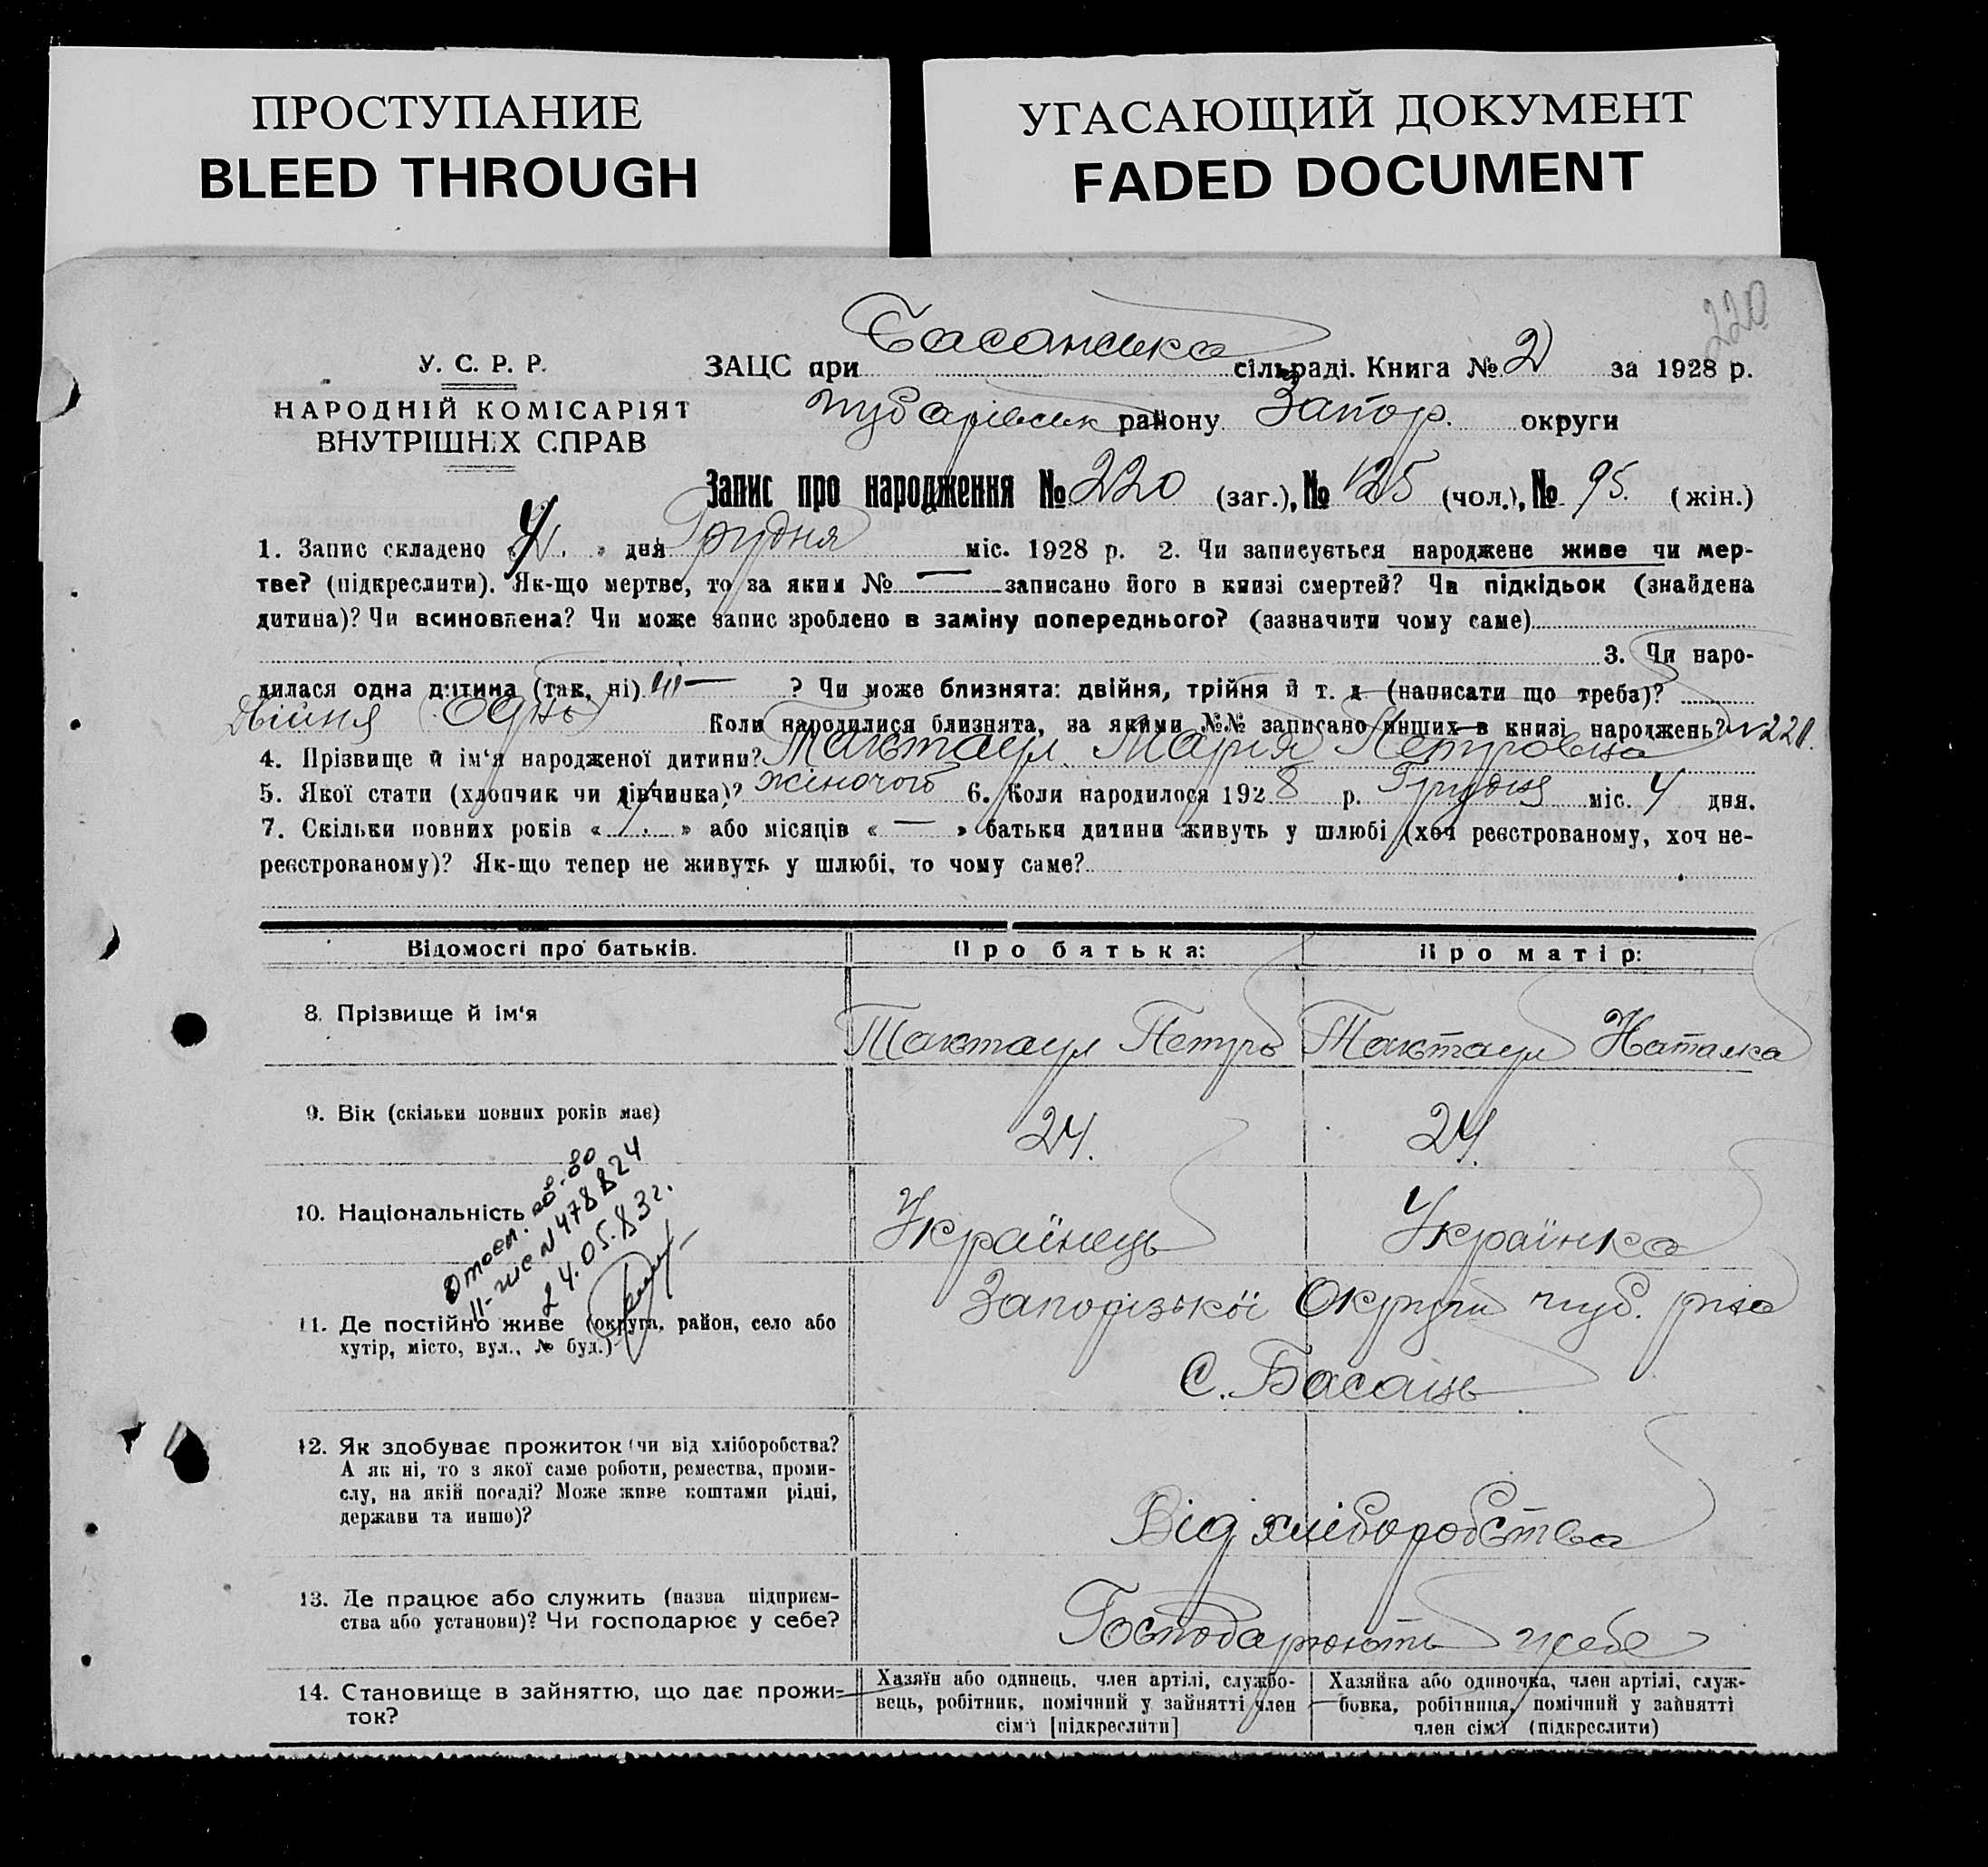 ПРОСТУПАНИЕ
BLEED THROUGH
УГАСАЮЩИЙ ДОКУМЕНТ
FADED DOCUMENT
220
У. С. Р. Р.
НАРОДНІЙ КОМІСАРІЯТ
ВНУТРІШНІХ СПРАВ
ЗАЦС при Басанська сільраді. Книга № 2 за 1928 р.
району Запор. округи
Запис про народження № 220 (заг.), № 125 (чол.), № 95. (жін.)
1. Запис складено « 4 » дня Грудня міс. 1928 р. 2. Чи записується народжене живе чи мер-
тве? (підкреслити). Як-що мертве, то за яким № — записано його в книзі смертей? Чи підкідьок (знайдена
дитина)? Чи всиновлена? Чи може запис зроблено в заміну попереднього? (зазначити чому саме)
3. Чи наро-
дилася одна дитина (так, ні) ні — ? Чи може близнята: двійня, трійня й т. д (написати що треба)?
Двійня Коли народилися близнята, за якими №№ записано инших в книзі народжень?
4. Прізвище й ім'я народженої дитини? Тактаул Марія Петровна
5. Якої стати (хлопчик чи дівчинка)? жіночого 6. Коли народилося 1928 р. Грудня міс. 4 дня.
7. Скільки повних років « 1. » або місяців « — » батьки дитини живуть у шлюбі (хоч реєстрованому, хоч не-
реєстрованому)? Як-що тепер не живуть у шлюбі, то чому саме?
Відомості про батьків. Про батька: Про матір:
8. Прізвище й ім'я Тактаул Петро Тактаул Наталка
9. Вік (скільки повних років має) 24. 24.
10. Національність Українець Українка
N 478824
24.05.83г.
11. Де постійно живе (округа, район, село або
хутір, місто, вул., № буд.)
Запорізької Округи чуб. р-на
С. Басань
12. Як здобуває прожиток (чи від хліборобства?
А як ні, то з якої саме роботи, ремества, проми-
слу, на якій посаді? Може живе коштами рідні,
держави та инше)?
Від хліборобства
13. Де працює або служить (назва підприєм-
ства або установи)? Чи господарює у себе?
Господарюють у себе
14. Становище в зайняттю, що дає прожи-
ток?
Хазяїн або одинець, член артілі, службо-
вець, робітник, помічний у зайнятті член
сім'ї [підкреслити]
Хазяйка або одиночка, член артілі, служ-
бовка, робітниця, помічний у зайнятті
член сім'ї (підкреслити)